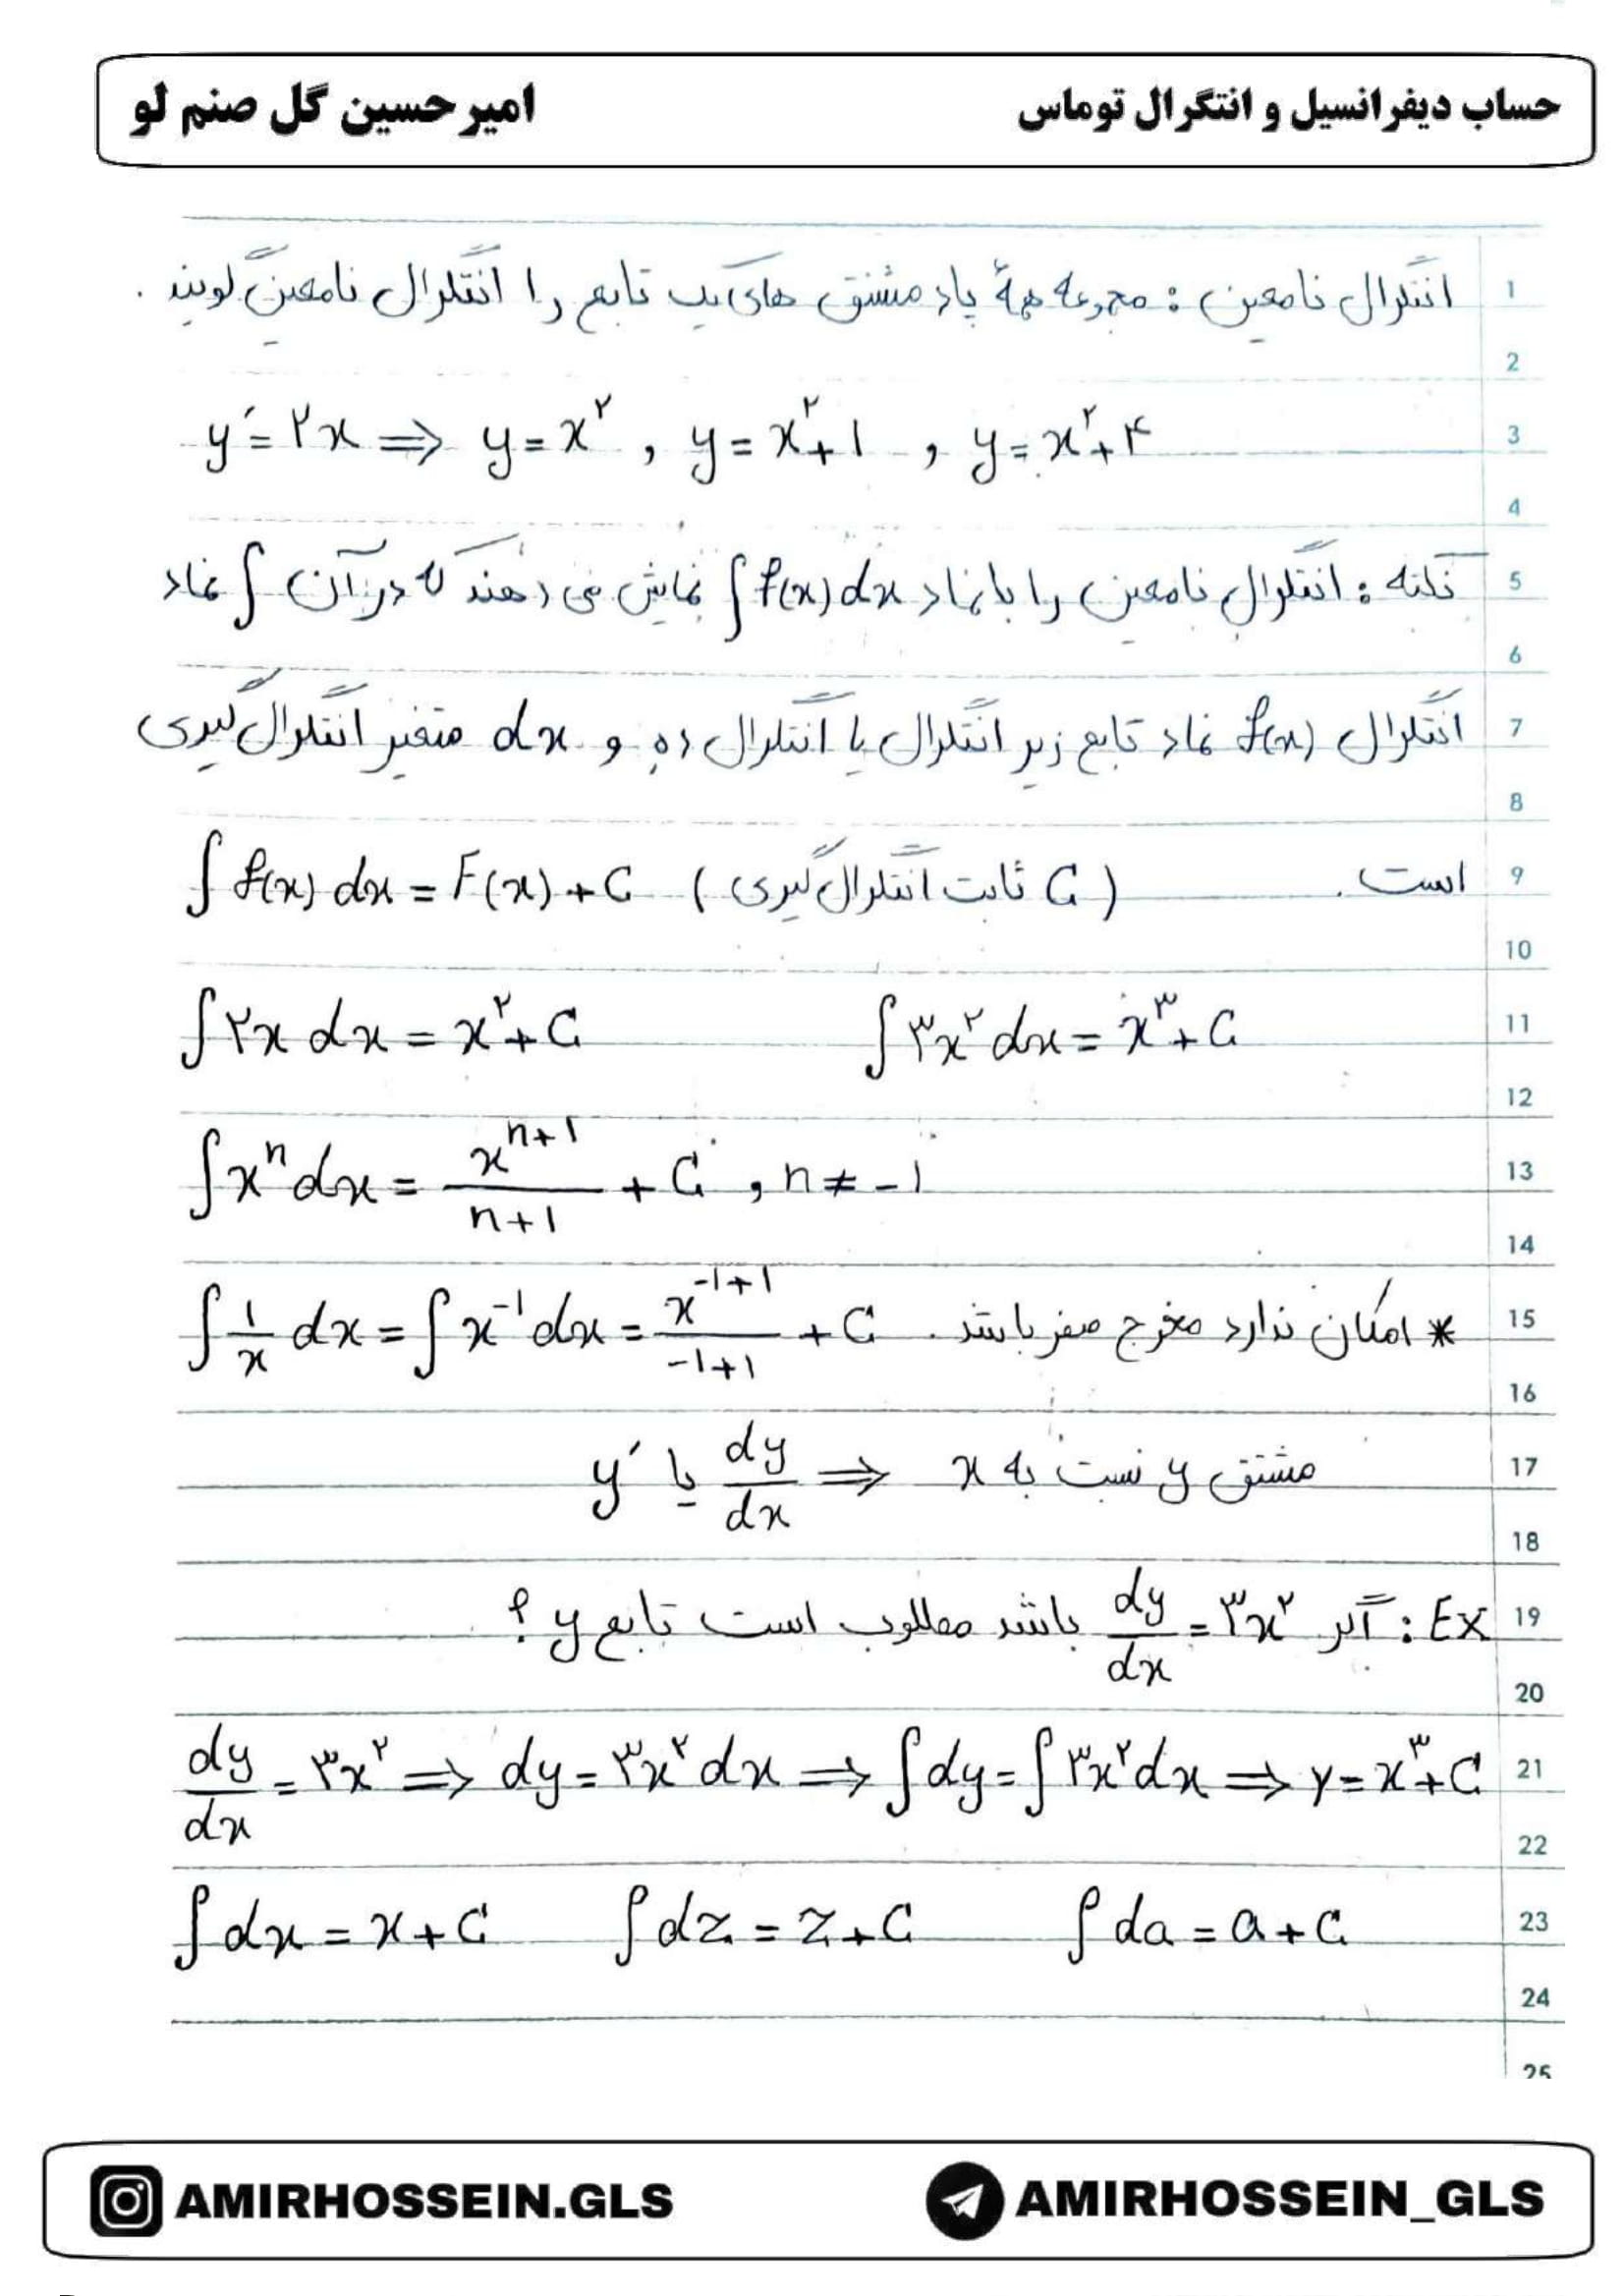 حساب دیفرانسیل و انتگرال توماس
امیرحسین گل صنم لو
1 انتگرال نامعین : مجموعه همهٔ پاد مشتق های یک تابع را انتگرال نامعین گویند .
2
3 y′ = ۲x ⇒ y = x^۲ , y = x^۲ + ۱ , y = x^۲ + ۴
4
5 نکته : انتگرال نامعین را با نماد ∫ f(x) dx نمایش می دهند که در آن ∫ نماد
6
7 انتگرال f(x) نماد تابع زیر انتگرال یا انتگرال ده و dx متغیر انتگرال گیری
8
9 است . ∫ f(x) dx = F(x) + C ( C ثابت انتگرال گیری )
10
11 ∫ ۲x dx = x^۲ + C ∫ ۳x^۲ dx = x^۳ + C
12
13 ∫ x^n dx = x^(n+1) / (n+1) + C , n ≠ -1
14
15 ∫ 1/x dx = ∫ x^-1 dx = x^(-1+1) / (-1+1) + C * امکان ندارد مخرج صفر باشد .
16
17 مشتق y نسبت به x ⇒ dy/dx یا y′
18
19 EX : اگر dy/dx = ۳x^۲ باشد مطلوب است تابع y ؟
20
21 dy/dx = ۳x^۲ ⇒ dy = ۳x^۲ dx ⇒ ∫ dy = ∫ ۳x^۲ dx ⇒ y = x^۳ + C
22
23 ∫ dx = x + C ∫ dz = z + C ∫ da = a + C
24
25
AMIRHOSSEIN.GLS
AMIRHOSSEIN_GLS